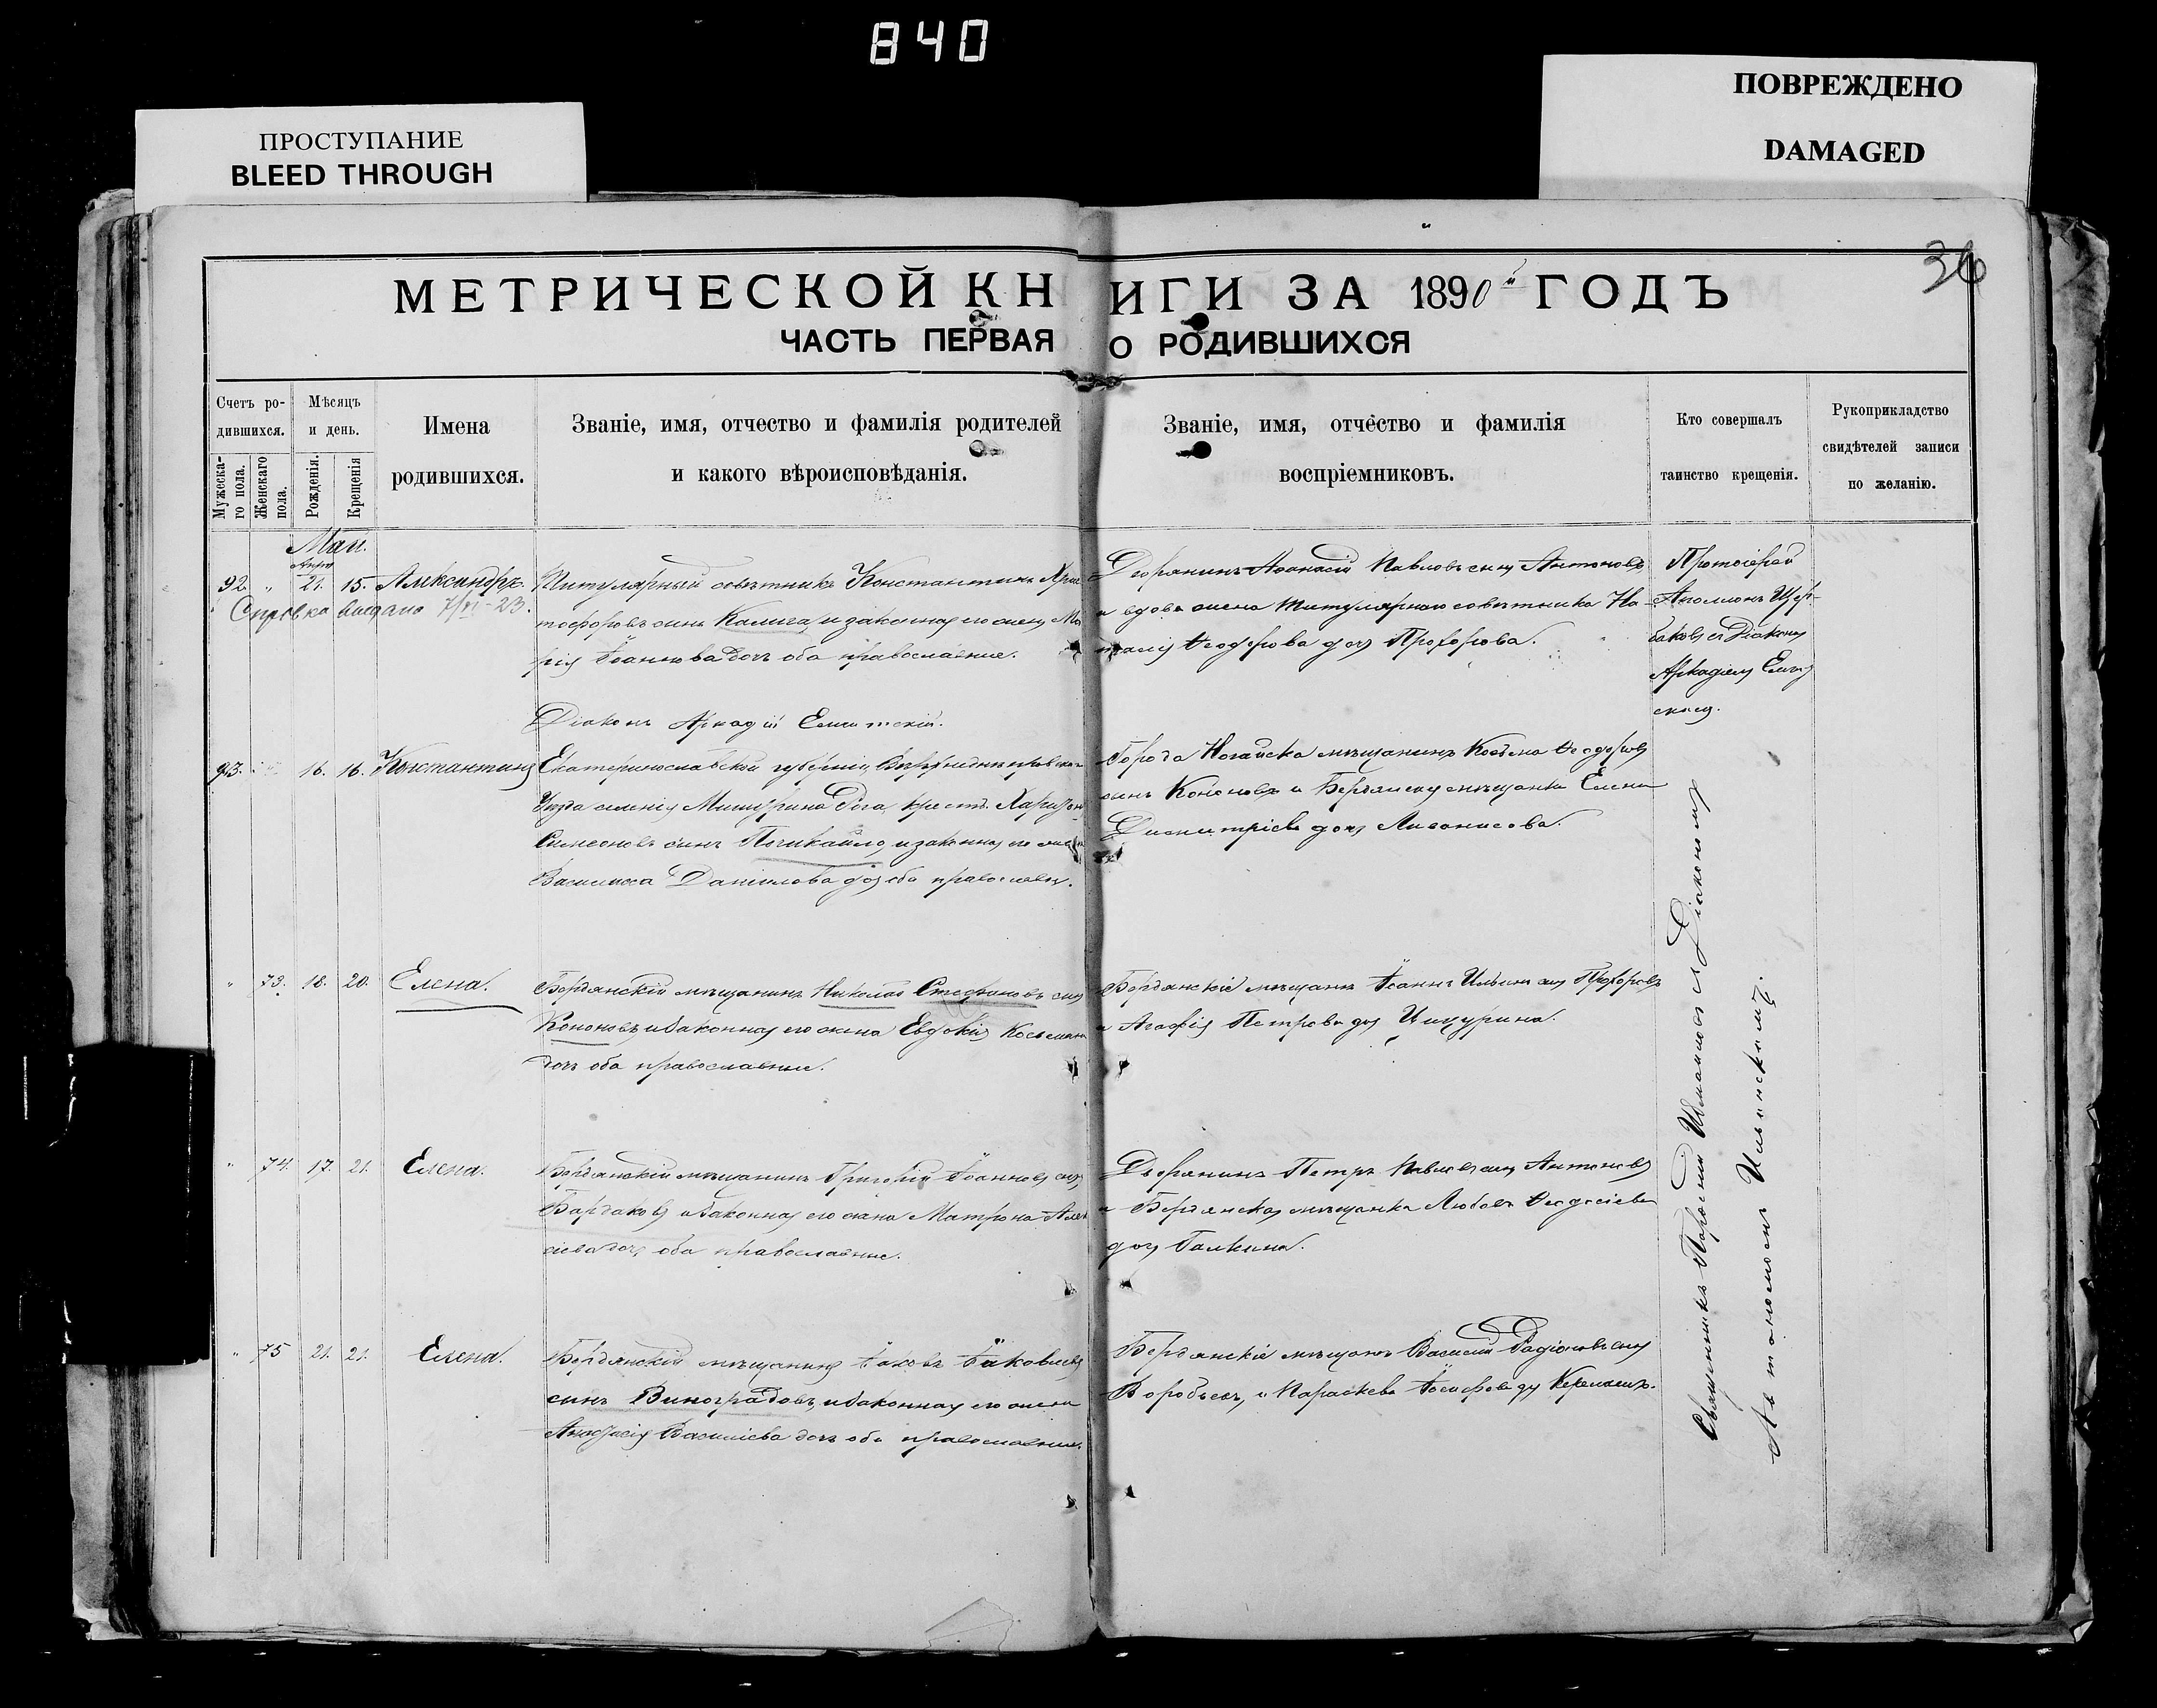 840
ПРОСТУПАНИЕ
BLEED THROUGH
ПОВРЕЖДЕНО
DAMAGED
36
МЕТРИЧЕСКОЙ КНИГИ ЗА 1890й ГОДЪ
ЧАСТЬ ПЕРВАЯ О РОДИВШИХСЯ
Счетъ ро-
дившихся.
Мужеска-
го пола.
Женскаго
пола.
Мѣсяцъ
и день.
Рожденія.
Крещенія
Имена
родившихся.
Званіе, имя, отчество и фамилія родителей
и какого вѣроисповѣданія.
Званіе, имя, отчество и фамилія
воспріемниковъ.
Кто совершалъ
таинство крещенія.
Рукоприкладство
свидѣтелей записи
по желанію.
Маи.
92 " 21. 15. Александръ.
Справка выдана
Титулярный совѣтникъ Константинъ Хрис-
тофоровъ сынъ Калига, и законная его жена Ма-
рія Іоаннова дочь оба православные.
Дворянинъ Аѳанасій Павловъ сынъ Антоновъ,
и вдова жена титулярнаго совѣтника На-
талія Ѳеодорова дочь Прохорова.
Протоіерей
Діаконъ Аркадій
93. 16. 16. Константинъ
Екатеринославской губерніи, Верхнеднѣпровскаго
Уѣзда Мишурина Рога, крест. Харитонъ
Симеоновъ сынъ и законная его жена
Василисса Данилова дочь оба православн.
Города Ногайска мѣщанинъ Косьма Ѳеодоровъ
сынъ Кононовъ и Бердянская мѣщанка Елена
Димитріева дочь
" 73. 18. 20. Елена.
Бердянскій мѣщанинъ Николай Стефановъ сынъ
Кононовъ и законная его жена Евдокія Косьмина
дочь оба православные.
Бердянскіе мѣщане Іоаннъ Ильинъ сынъ Прохоровъ
и Агафія Петрова дочь
" 74. 17. 21. Елена.
Бердянскій мѣщанинъ Григорій Іоанновъ сынъ
Бардаковъ и законная его жена Матрона Алек-
сіева дочь оба православные.
Дворянинъ Петръ Павловъ сынъ Антоновъ
и Бердянская мѣщанка Любовь Ѳеодосіева
дочь Галкина.
" 75 21. 21. Елена.
Бердянскій мѣщанинъ Іаковъ Іаковлевъ
сынъ Виноградовъ, и законная его жена
Анастасія Василіева дочь оба православные.
Бердянскіе мѣщане Василій Радіоновъ сынъ
Воробьевъ, и Параскева Іосифова дочь
Священникъ съ Діакономъ
Ильинскимъ.